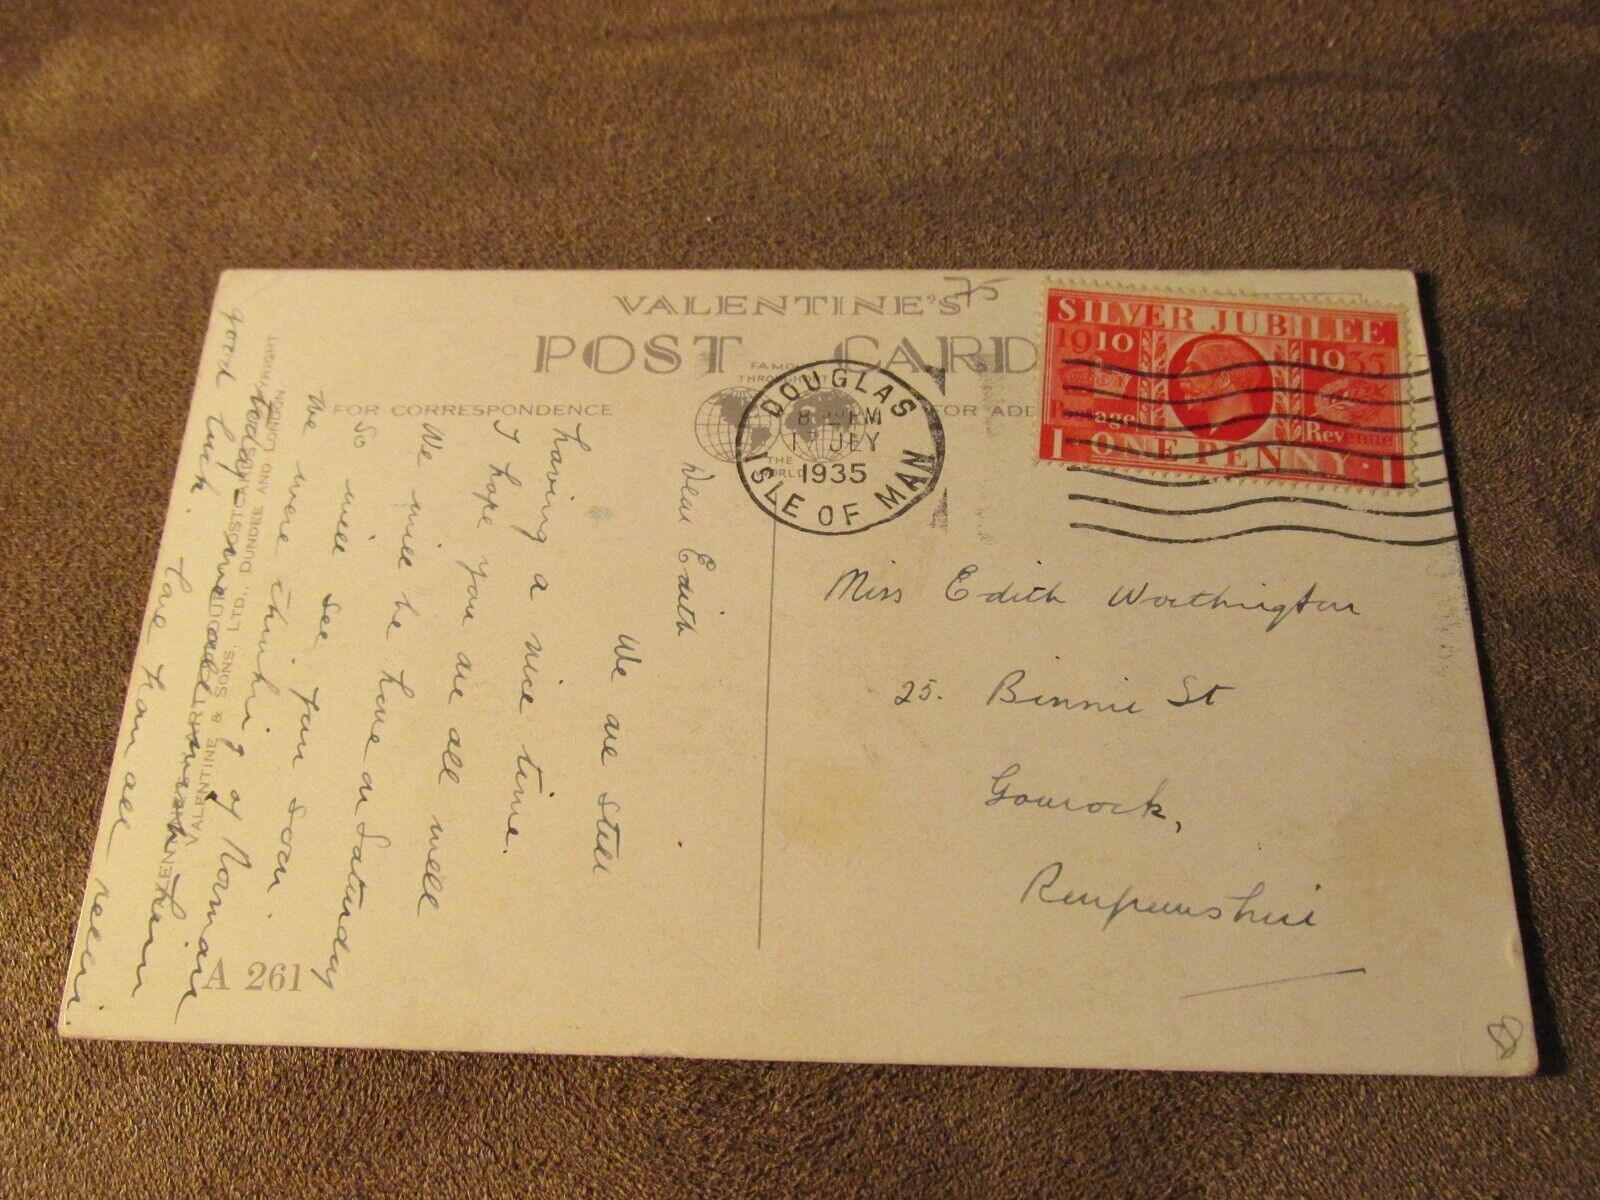 VALENTINE'S
75
POST CARD
FAMOUS
THROUGHOUT
THE
WORLD
FOR CORRESPONDENCE
FOR ADD
DOUGLAS
PM
JLY
1935
ISLE OF MAN
SILVER JUBILEE
1910 1935
Postage Revenue
1 ONE PENNY 1
Miss Edith Worthington
25. Binnie St
Gourock,
Renfrewshire
Dear Edith
We are still
having a nice time.
I hope you are all well
We will be home on Saturday
So will see you soon.
We were thinking of Norman
today we all wish him
good luck. Love from all
VALENTINE & SONS, LTD., DUNDEE AND LONDON
COPYRIGHT
A 261